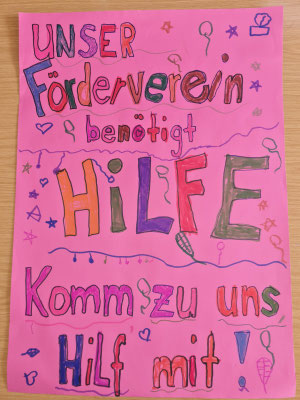 UNSER
Förderverein
benötigt
HiLFE
Komm zu uns,
Hilf mit!